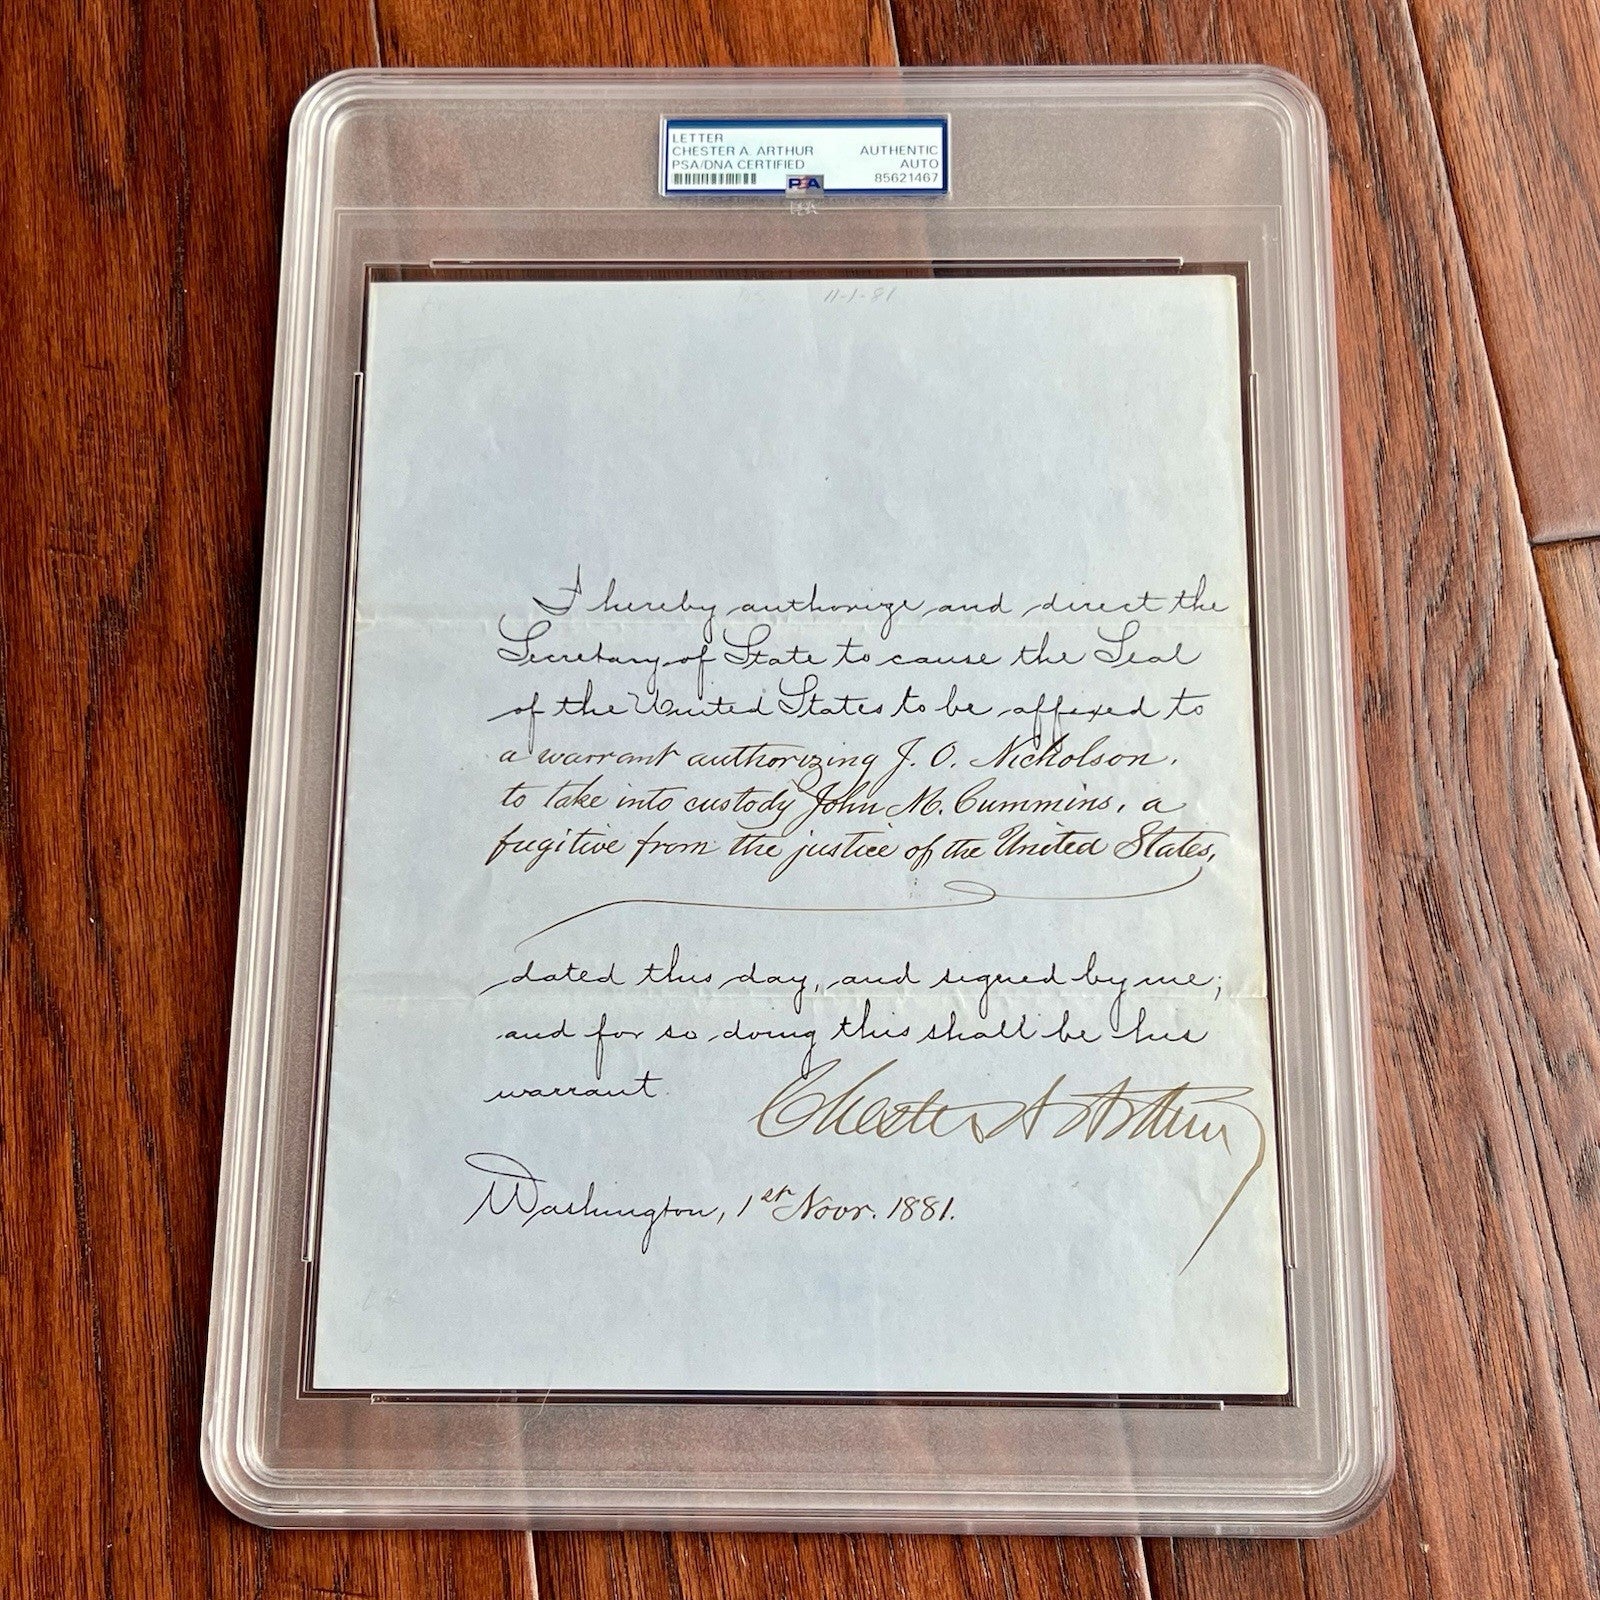 LETTER
CHESTER A. ARTHUR AUTHENTIC
PSA/DNA CERTIFIED AUTO
PSA 85621467
PSA
11-1-81
I hereby authorize and direct the
Secretary of State to cause the Seal
of the United States to be affixed to
a warrant authorizing J. O. Nicholson,
to take into custody John M. Cummins, a
fugitive from the justice of the United States,
dated this day, and signed by me;
and for so doing this shall be his
warrant.
Chester A Arthur
Washington, 1st Novr. 1881.